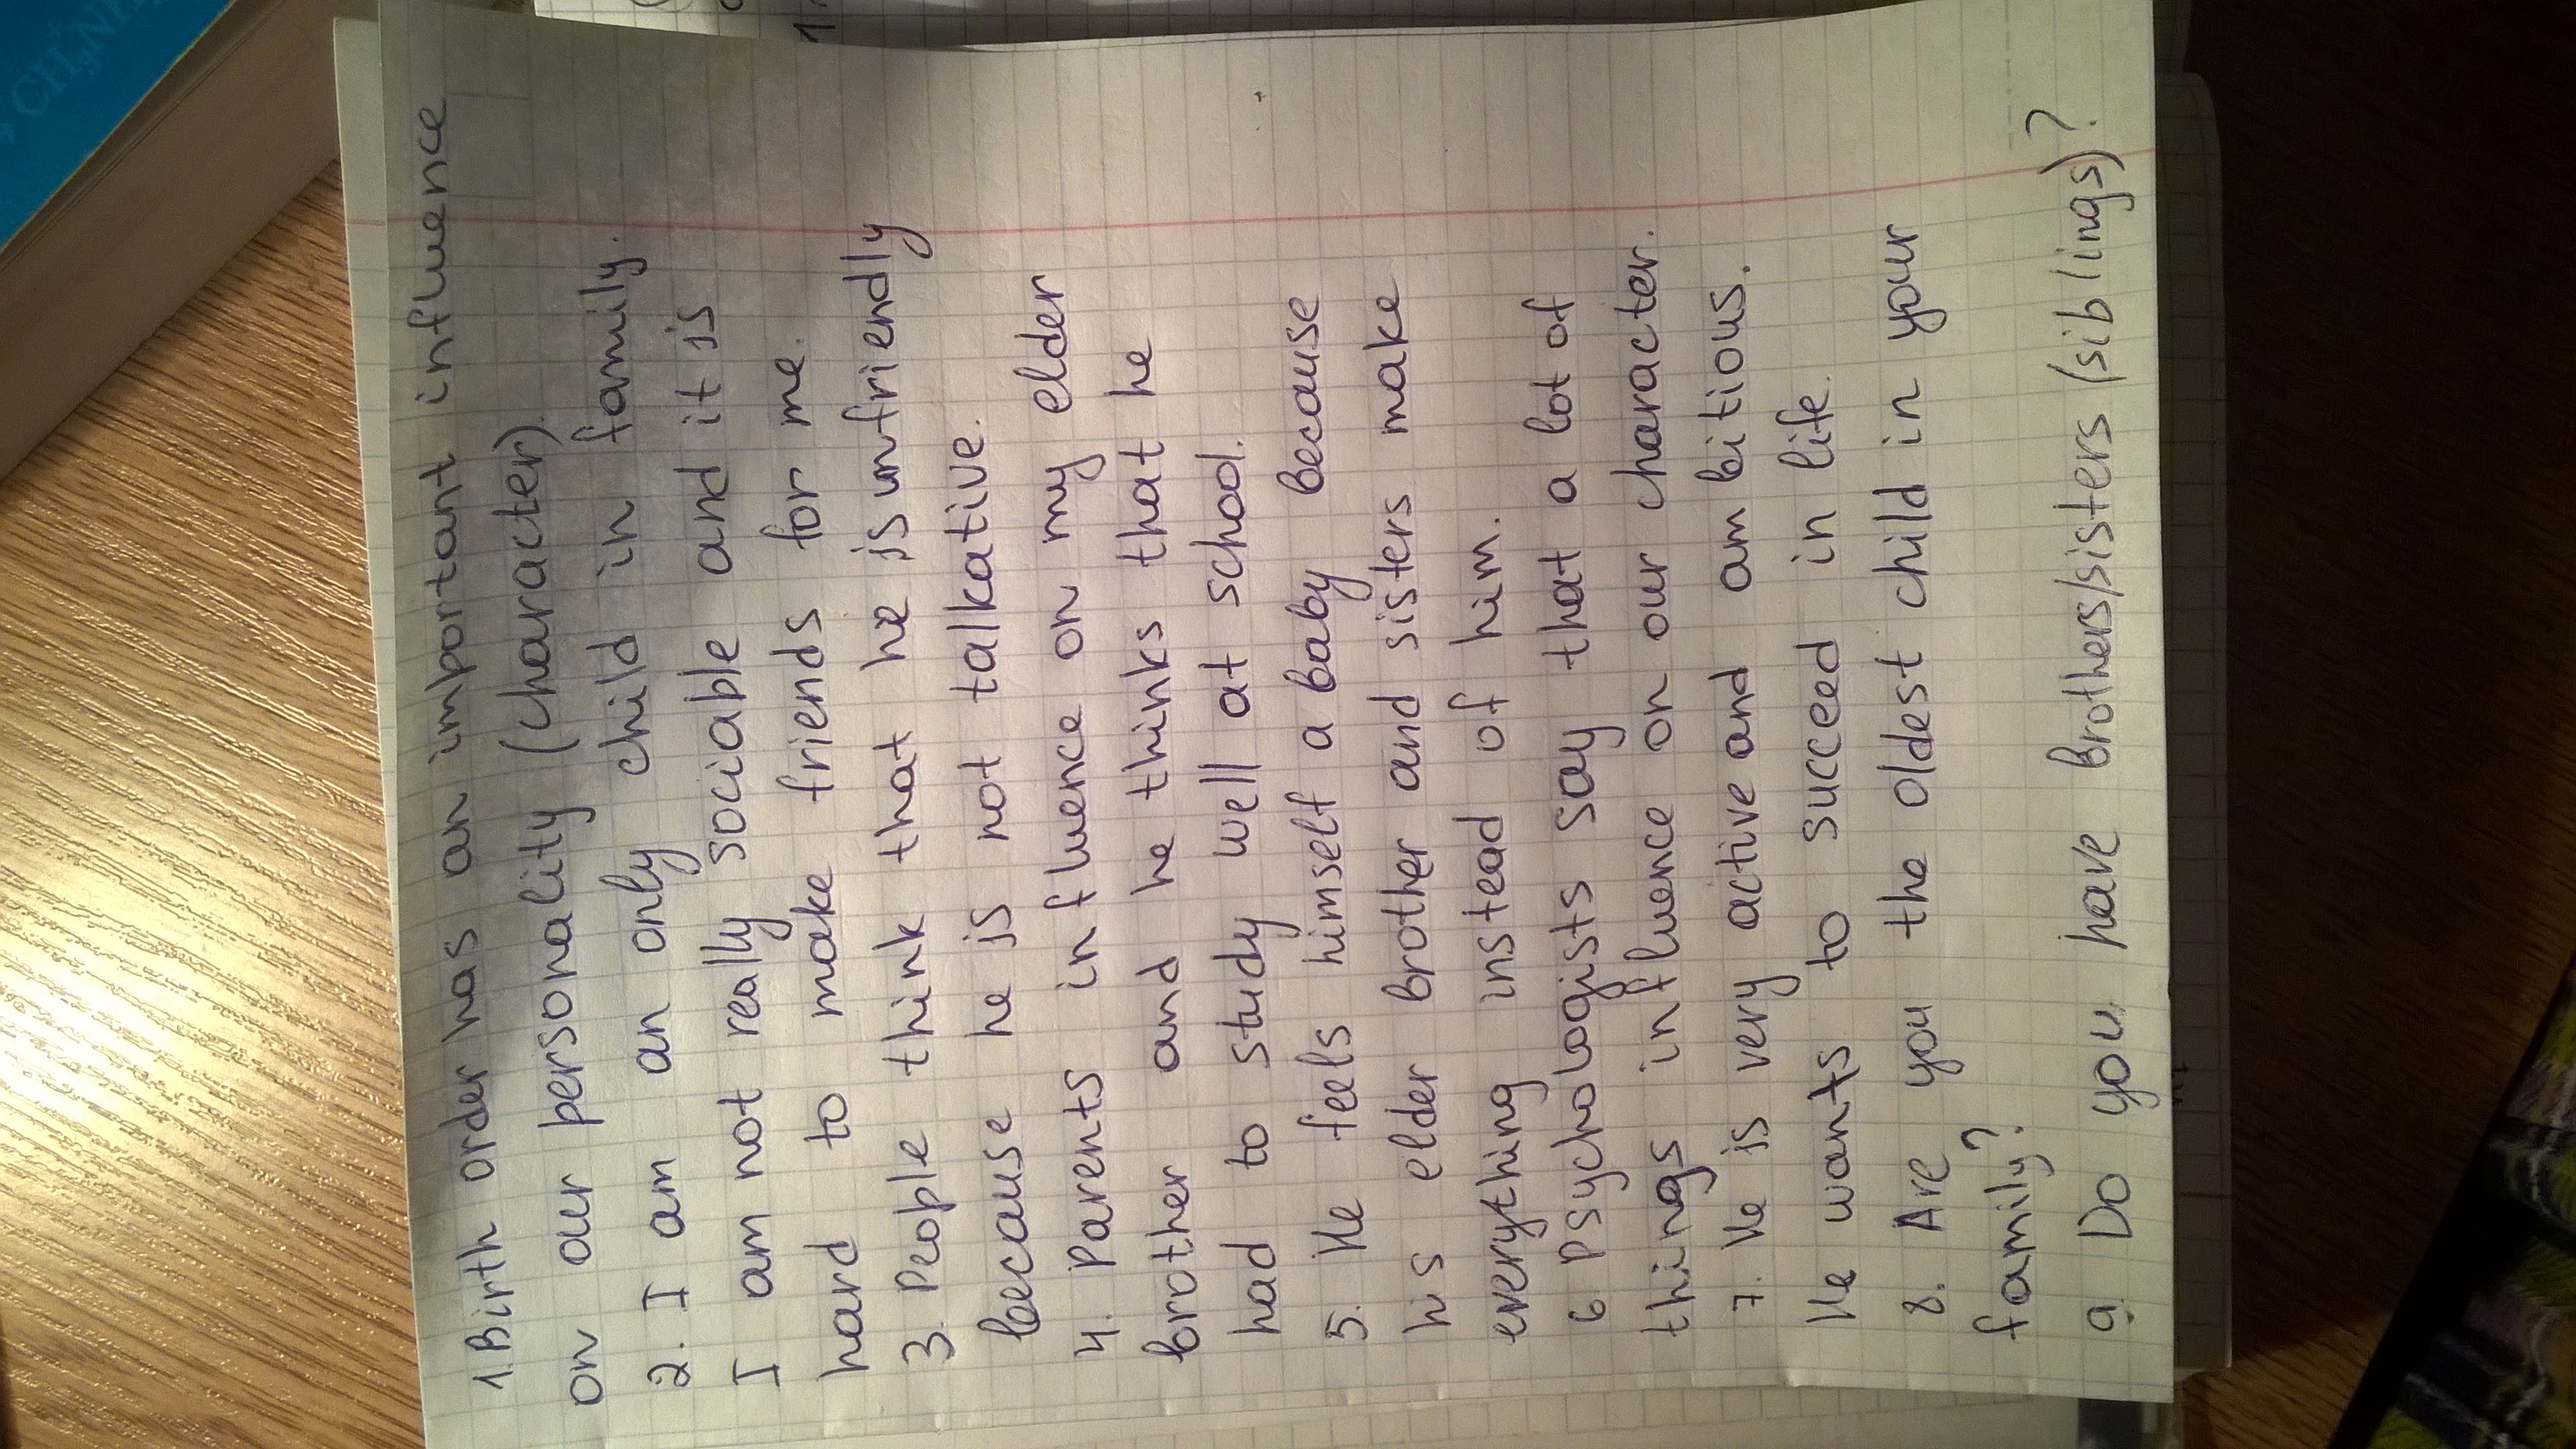 1. Birth order has an important influence
on our personality (character).
2. I am an only child in family.
I am not really sociable and it is
hard to make friends for me.
3. People think that he is unfriendly
because he is not talkative.
4. Parents influence on my elder
brother and he thinks that he
had to study well at school.
5. He feels himself a baby because
his elder brother and sisters make
everything instead of him.
6 Psychologists say that a lot of
things influence on our character.
7. He is very active and ambitious.
He wants to succeed in life.
8. Are you the oldest child in your
family?
9. Do you have brothers/sisters (siblings)?